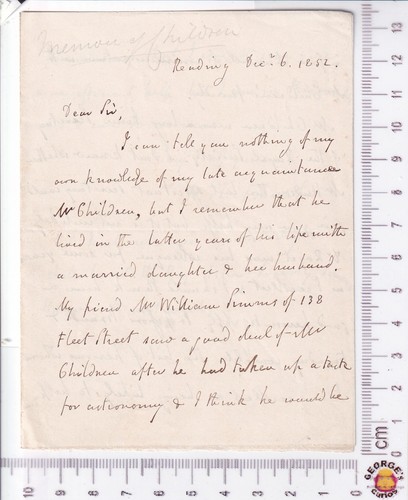 Memoir of Children
Reading Decr. 6. 1852.
Dear Sir,
I can tell you nothing of my
own knowledge of my late acquaintance
Mr Children, but I remember that he
lived in the latter years of his life with
a married daughter & her husband.
My friend Mr William Simms of 138
Fleet Street saw a good deal of Mr
Children after he had taken up a taste
for astronomy & I think he would be
13
12
11
10
9
8
7
6
5
4
3
2
1
cm
10 9 8 7 6 5 4 3 2 1 0
GEORGE'S